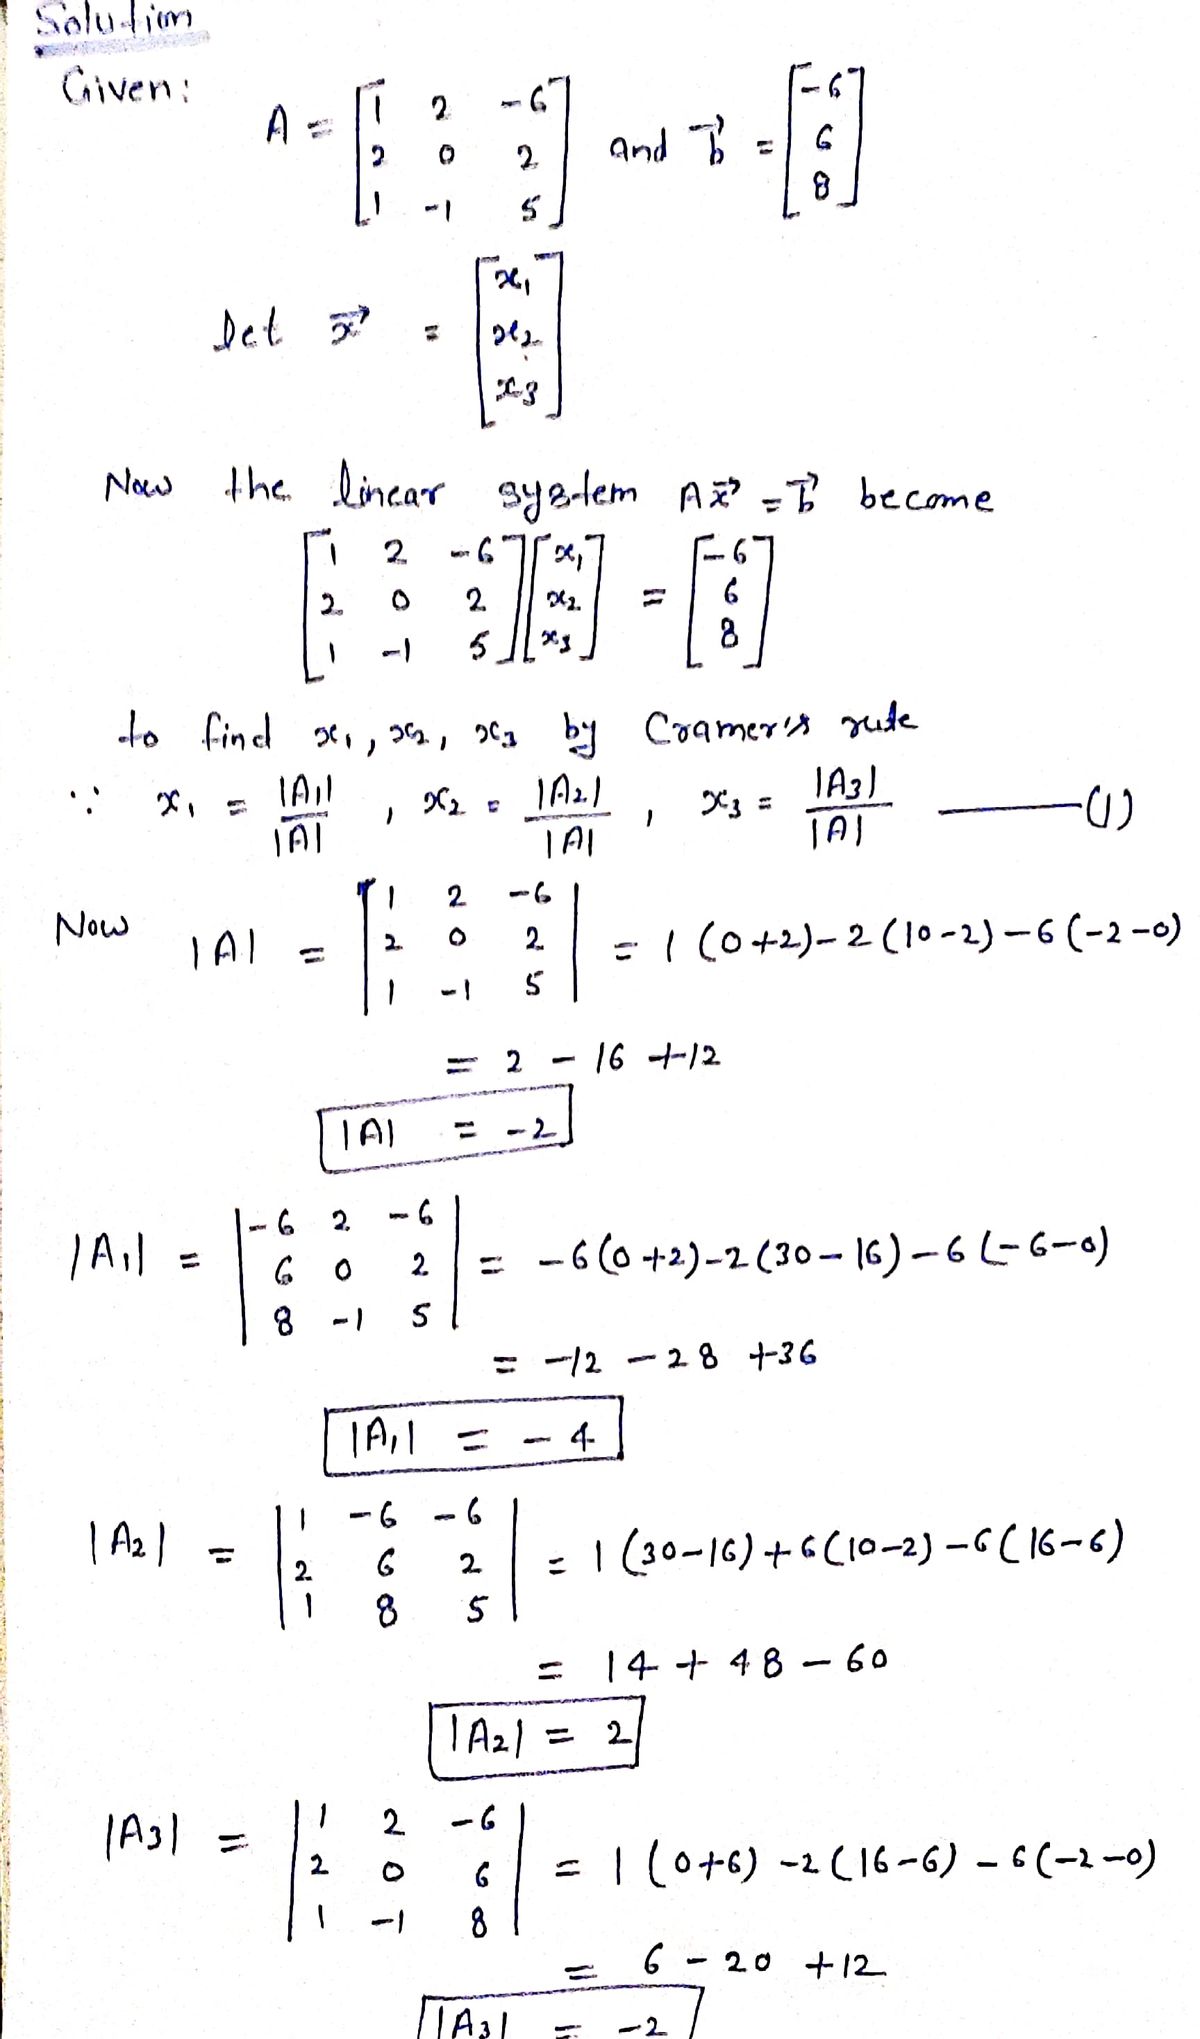 Solution
Given:
A = [1 2 -6; 2 0 2; 1 -1 5] and b⃗ = [-6; 6; 8]
Let x⃗ = [x₁; x₂; x₃]
Now the linear system Ax⃗ = b⃗ become
[1 2 -6; 2 0 2; 1 -1 5] [x₁; x₂; x₃] = [-6; 6; 8]
to find x₁, x₂, x₃ by Cramer's rule
∵ x₁ = |A₁|/|A| , x₂ = |A₂|/|A| , x₃ = |A₃|/|A| ——— (1)
Now |A| = |1 2 -6; 2 0 2; 1 -1 5| = 1 (0+2) - 2 (10-2) - 6 (-2-0)
= 2 - 16 + 12
|A| = -2
|A₁| = |-6 2 -6; 6 0 2; 8 -1 5| = -6 (0+2) - 2 (30-16) - 6 (-6-0)
= -12 - 28 + 36
|A₁| = -4
|A₂| = |1 -6 -6; 2 6 2; 1 8 5| = 1 (30-16) + 6 (10-2) - 6 (16-6)
= 14 + 48 - 60
|A₂| = 2
|A₃| = |1 2 -6; 2 0 6; 1 -1 8| = 1 (0+6) - 2 (16-6) - 6 (-2-0)
= 6 - 20 + 12
|A₃| = -2